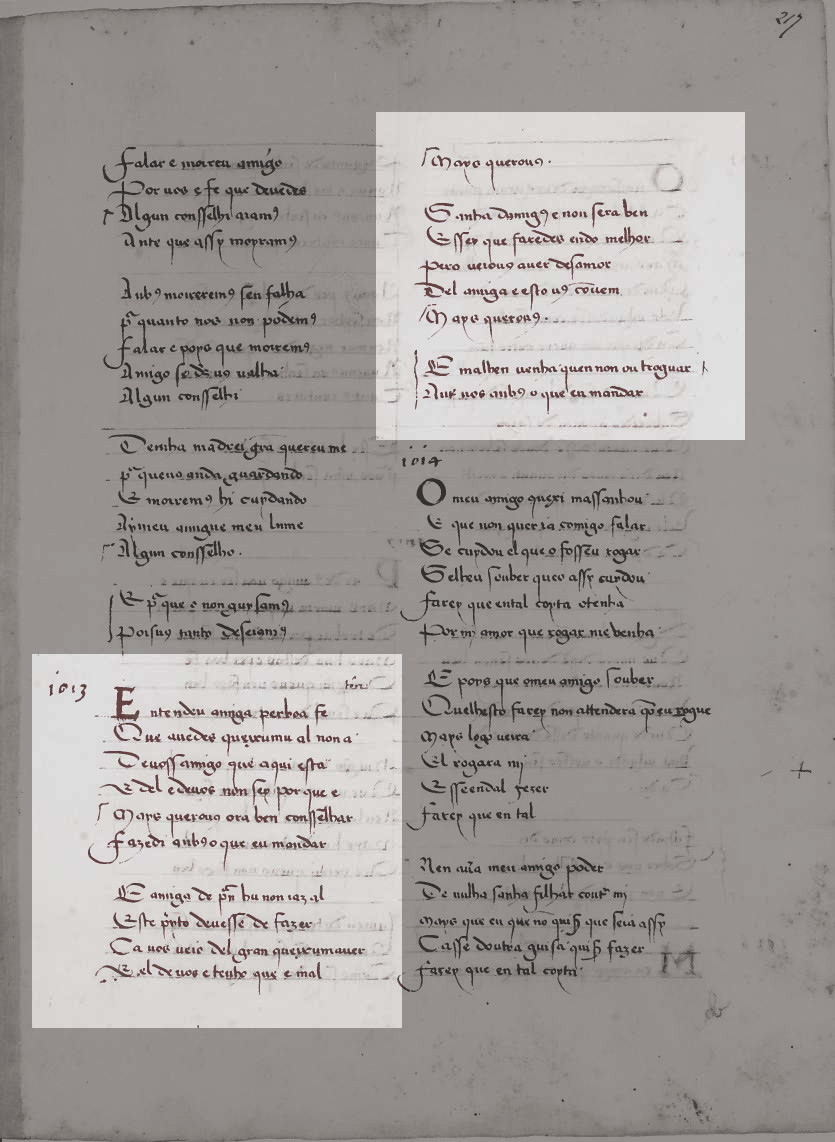 217
Falar e moireu amigo
Por uos e fe que deuedes
Algun consselhi aiamꝰ
Ante que assy moyramꝰ
Aubꝰ moireremꝰ sen falha
pᵃ quanto nos non podemꝰ
Falar e poys que moiremꝰ
Amigo se đs uꝰ ualha
Algun consselhi
Tenha madrei gra quereume
E moiremꝰ hi cuydando
Ay meu amigue meu lume
Algun conselho.
E pᵃ que o non guysamꝰ
Poisuꝰ tanto deseiamꝰ
1013
Entendeu amiga per boa fe
Que auedes queyxumu al non a
De uoss amigo que aqui esta
E del e de uos non sey por que e
Mays querouꝰ ora ben consselhar
Fazedi aubꝰ o que eu mandar
E amiga de pᵃn hu non iaz al
Este p̃nto deuesse de fazer
Ca uos ueio del gran queyxum auer
E el de uos e tenho que e mal
Mays querouꝰ.
Sanha damigꝰ e non sera ben
Essey que faredes endo melhor
Pero ueiouꝰ auer desamor
Del amiga e esto uꝰ cōuem
Mays querouꝰ.
E malhen uenha quen non ou troguar
Aut uos aubꝰ o que eu mandar
1014
O meu amigo queixi massanhou
E que non quer ia comigo falar
Se cuydou el que o fosseu rogar
Selheu souber queo assy cuydou
Farey que en tal coyta o tenha
Por mj̄ amor que rogar me uenha
E poys que o meu amigo souber
Que lhesto farey non attendera q̄o eu rogue
Mays logo ueira
El rogara mj̄
E sseendal fezer
Farey que en tal
Nen aūa meu amigo poder
De nulha sanha filhar contᵃ mj
Mays que eu que no quiser que seia assy
Ca sse doutra guisa quiser fazer
Farey que en tal coyta